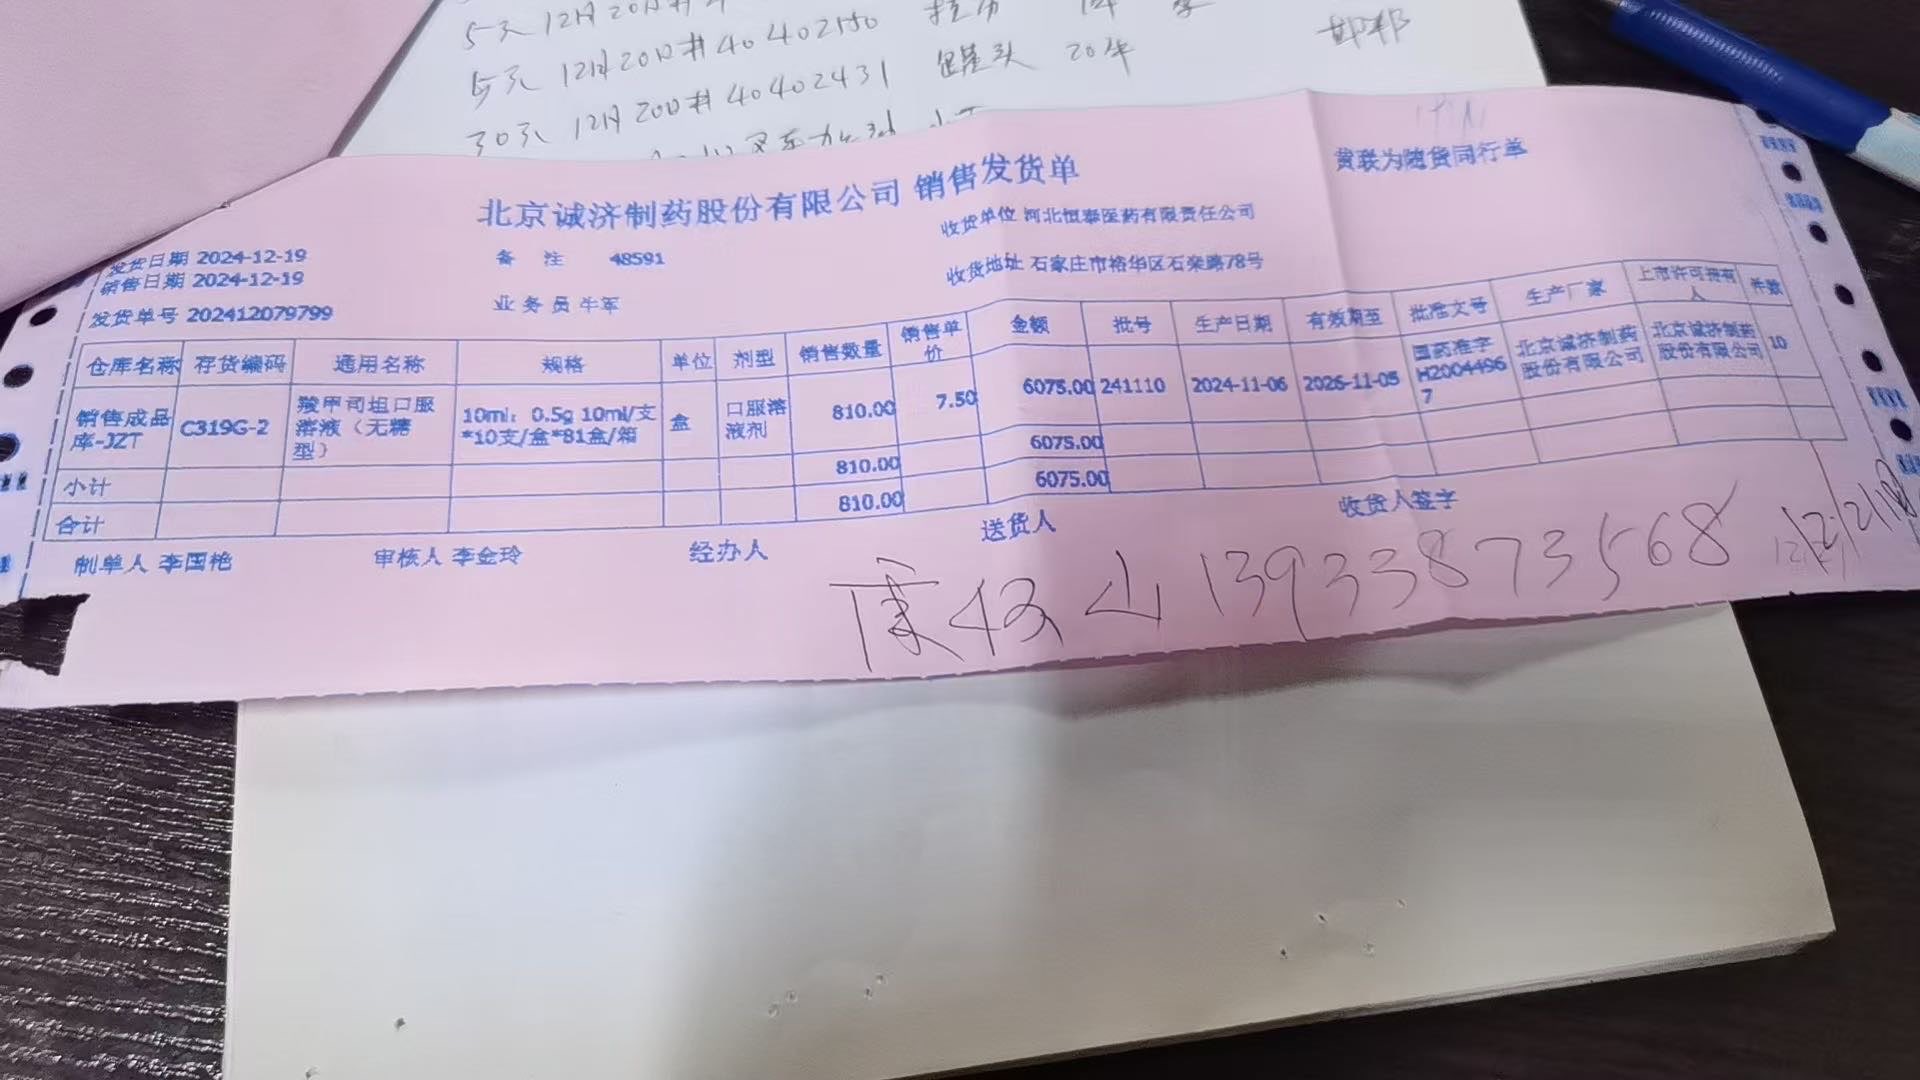 5天 12月20日#
5天 12月20日#40402150
5天 12月20日#40402431 罐头 20年
30天
邯郸
北京诚济制药股份有限公司 销售发货单
黄联为随货同行单
发货日期 2024-12-19 备 注 48591 收货单位 河北恒泰医药有限责任公司
销售日期 2024-12-19 收货地址 石家庄市裕华区石栾路78号
发货单号 202412079799 业 务 员 牛军
仓库名称 存货编码 通用名称 规格 单位 剂型 销售数量 销售单价 金额 批号 生产日期 有效期至 批准文号 生产厂家 上市许可持有人 件数
销售成品库-JZT C319G-2 羧甲司坦口服溶液（无糖型） 10ml：0.5g 10ml/支*10支/盒*81盒/箱 盒 口服溶液剂 810.00 7.50 6075.00 241110 2024-11-06 2026-11-05 国药准字H20044967 北京诚济制药股份有限公司 北京诚济制药股份有限公司 10
小计 810.00 6075.00
合计 810.00 6075.00
制单人 李国艳 审核人 李金玲 经办人 送货人 收货人签字
13933873568